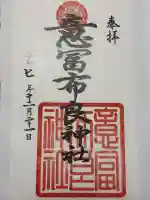 奉拝
意冨布良神社
令和七年十一月二十一日
意冨
布良
神社